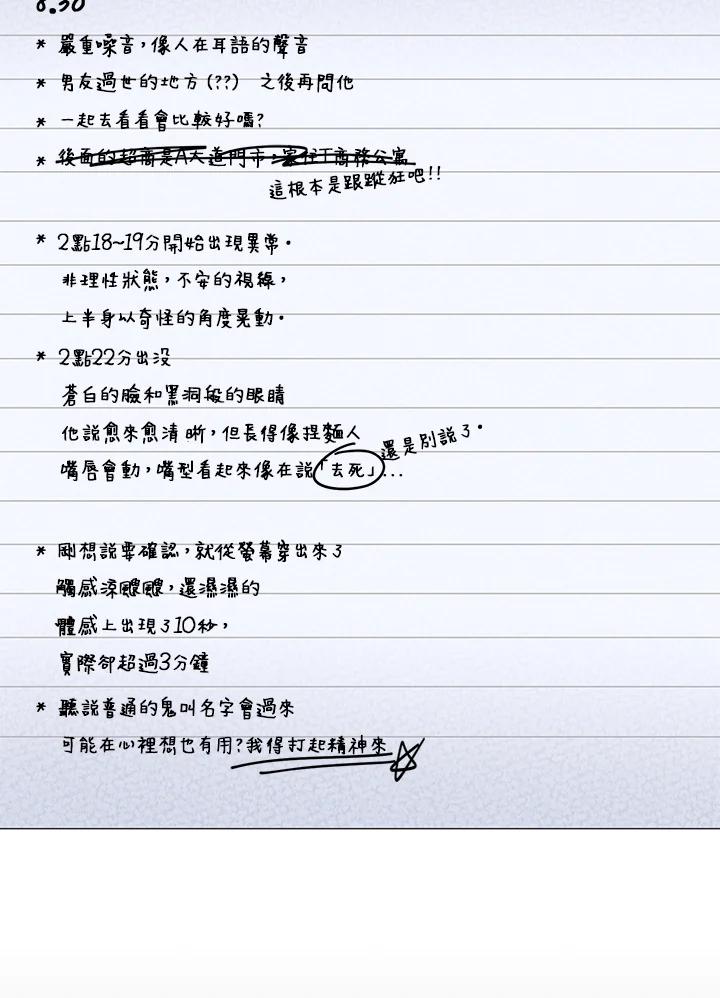 8.30
* 嚴重噪音,像人在耳語的聲音
* 男友過世的地方(??) 之後再問他
* 一起去看看會比較好嗎?
* 後面的超商是A大道門市;家住T商務公寓
這根本是跟蹤狂吧!!
* 2點18~19分開始出現異常。
非理性狀態,不安的視線,
上半身以奇怪的角度晃動。
* 2點22分出沒
蒼白的臉和黑洞般的眼睛
他說愈來愈清晰,但長得像捏麵人
還是別說了。
嘴唇會動,嘴型看起來像在說「去死」...
* 剛想說要確認,就從螢幕穿出來了
觸感涼颼颼,還濕濕的
體感上出現了10秒,
實際卻超過3分鐘
* 聽說普通的鬼叫名字會過來
可能在心裡想也有用?我得打起精神來